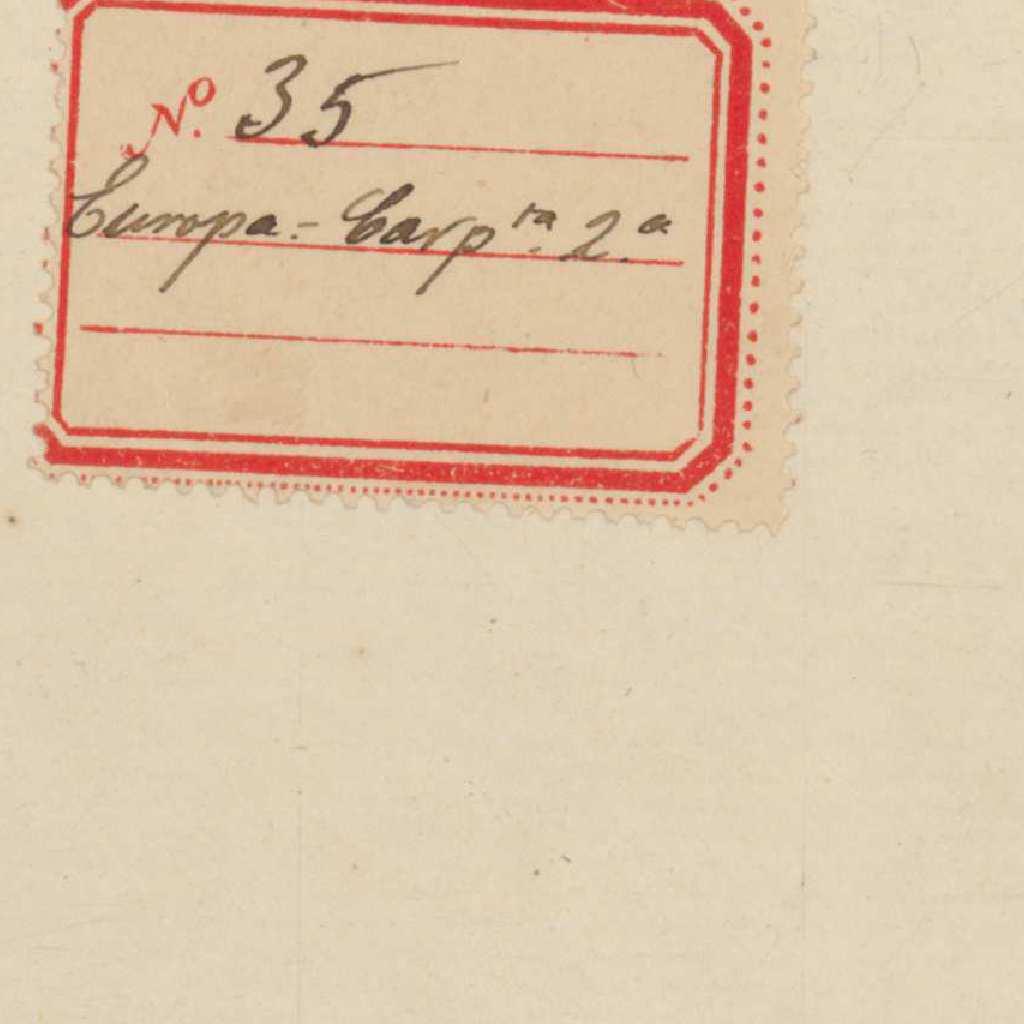 Nº. 35
Europa.- Carpᵗᵃ 2.ª